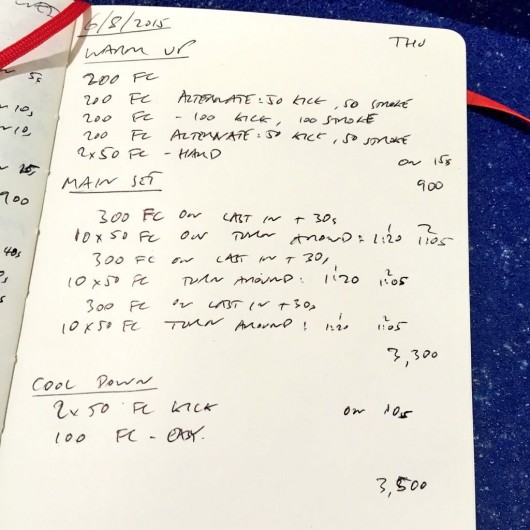 WED
5s
10s
10s
15s
900
40s
6/8/2015
THU
WARM UP
200 FC
200 FC ALTERNATE: 50 KICK, 50 STROKE
200 FC - 100 KICK, 100 STROKE
200 FC ALTERNATE: 50 KICK, 50 STROKE
2x50 FC - HARD
ON 15s
900
MAIN SET
300 FC ON LAST IN + 30s
10x50 FC ON TURN AROUND: 1 1:20 2 1:05
300 FC ON LAST IN + 30s
10x50 FC TURN AROUND: 1 1:20 2 1:05
300 FC ON LAST IN + 30s
10x50 FC TURN AROUND: 1 1:20 2 1:05
3,300
COOL DOWN
2x50 FC KICK ON 10s
100 FC - EASY.
3,500